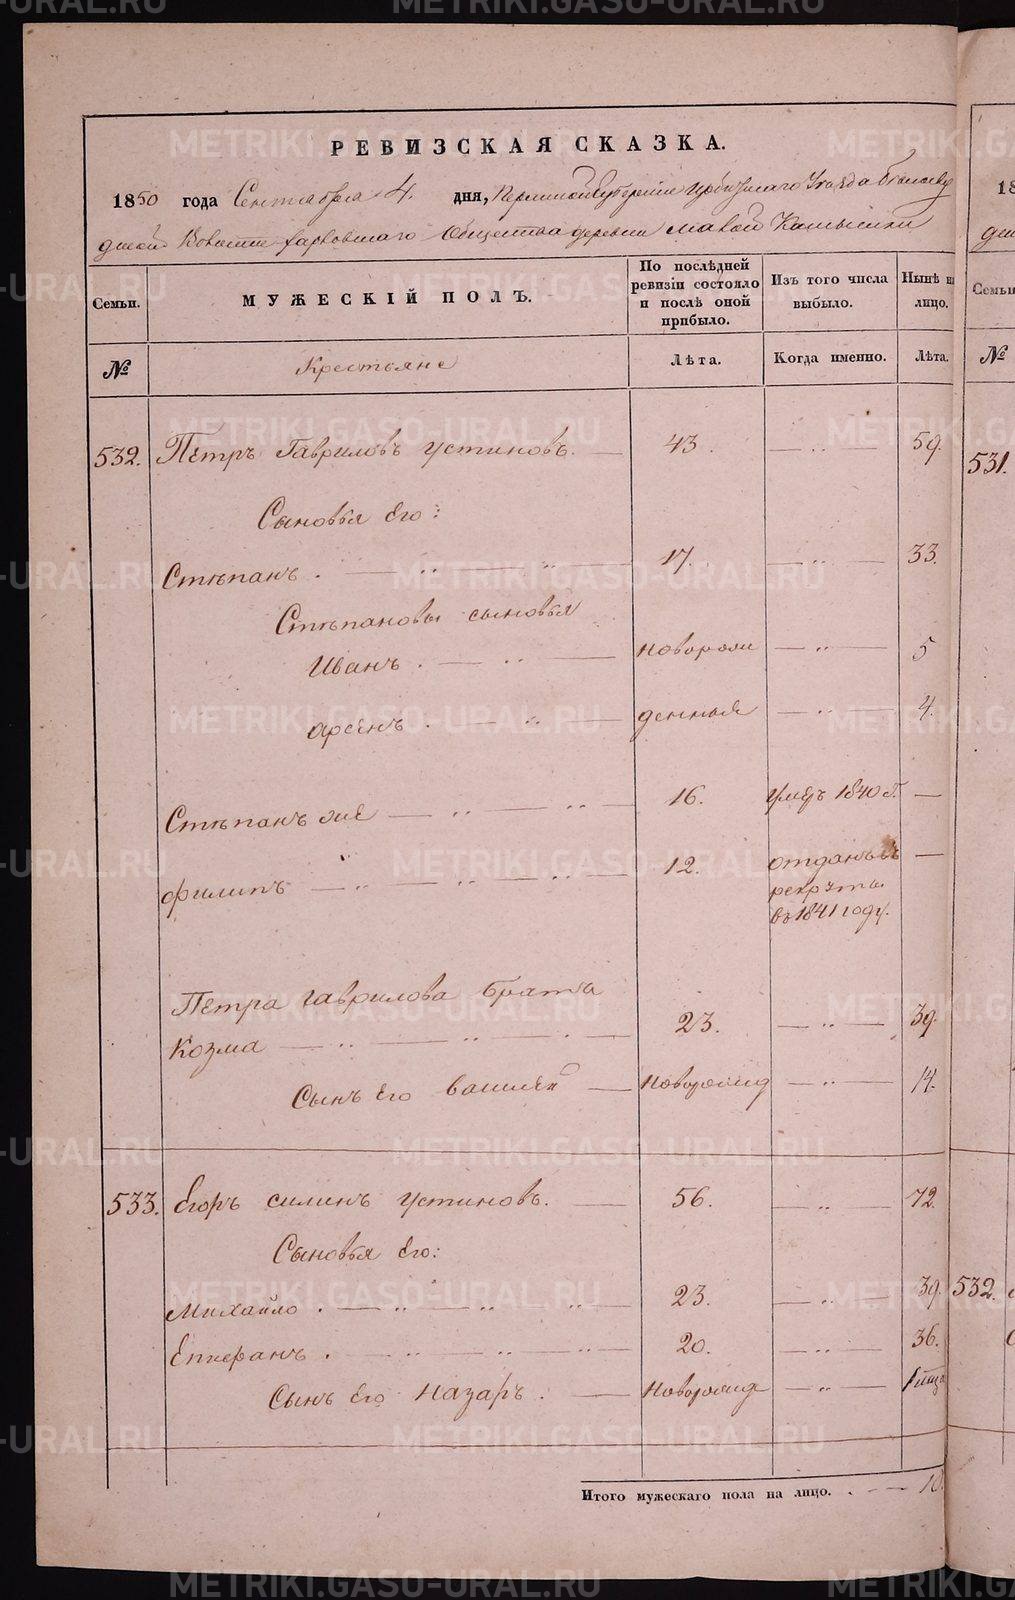 РЕВИЗСКАЯ СКАЗКА.
1850 года Сентября 4. дня, Пермской Губернии Ирбитскаго Уезда
Волости Харловскаго Общества деревни Малой Камышки
Семьи. МУЖЕСКІЙ ПОЛЪ. По послѣдней ревизіи состояло и послѣ оной прибыло. Изъ того числа выбыло. Нынѣ на лицо.
№ Крестьяне Лѣта. Когда именно. Лѣта.
532. Петръ Гавриловъ Устиновъ. 43. 59.
Сыновья Его:
Стѣпанъ. 17. 33.
Стѣпановы сыновья
Иванъ. новорож 5
Арсѣнъ. денныя 4.
Стѣпанъ же 16. умеръ 1840 г.
Филипъ 12. отданъ въ
рекруты
въ 1841 году.
Петра Гаврилова братъ
Козма 23. 39.
Сынъ Его Василей Новорожд 14.
533. Егоръ Силинъ Устиновъ. 56. 72.
Сыновья Его:
Михайло. 23. 39.
Епифанъ. 20. 36.
Сынъ Его Назаръ. Новорожд
Итого мужескаго пола на лицо. 10.
531.
532.
METRIKI.GASO-URAL.RU